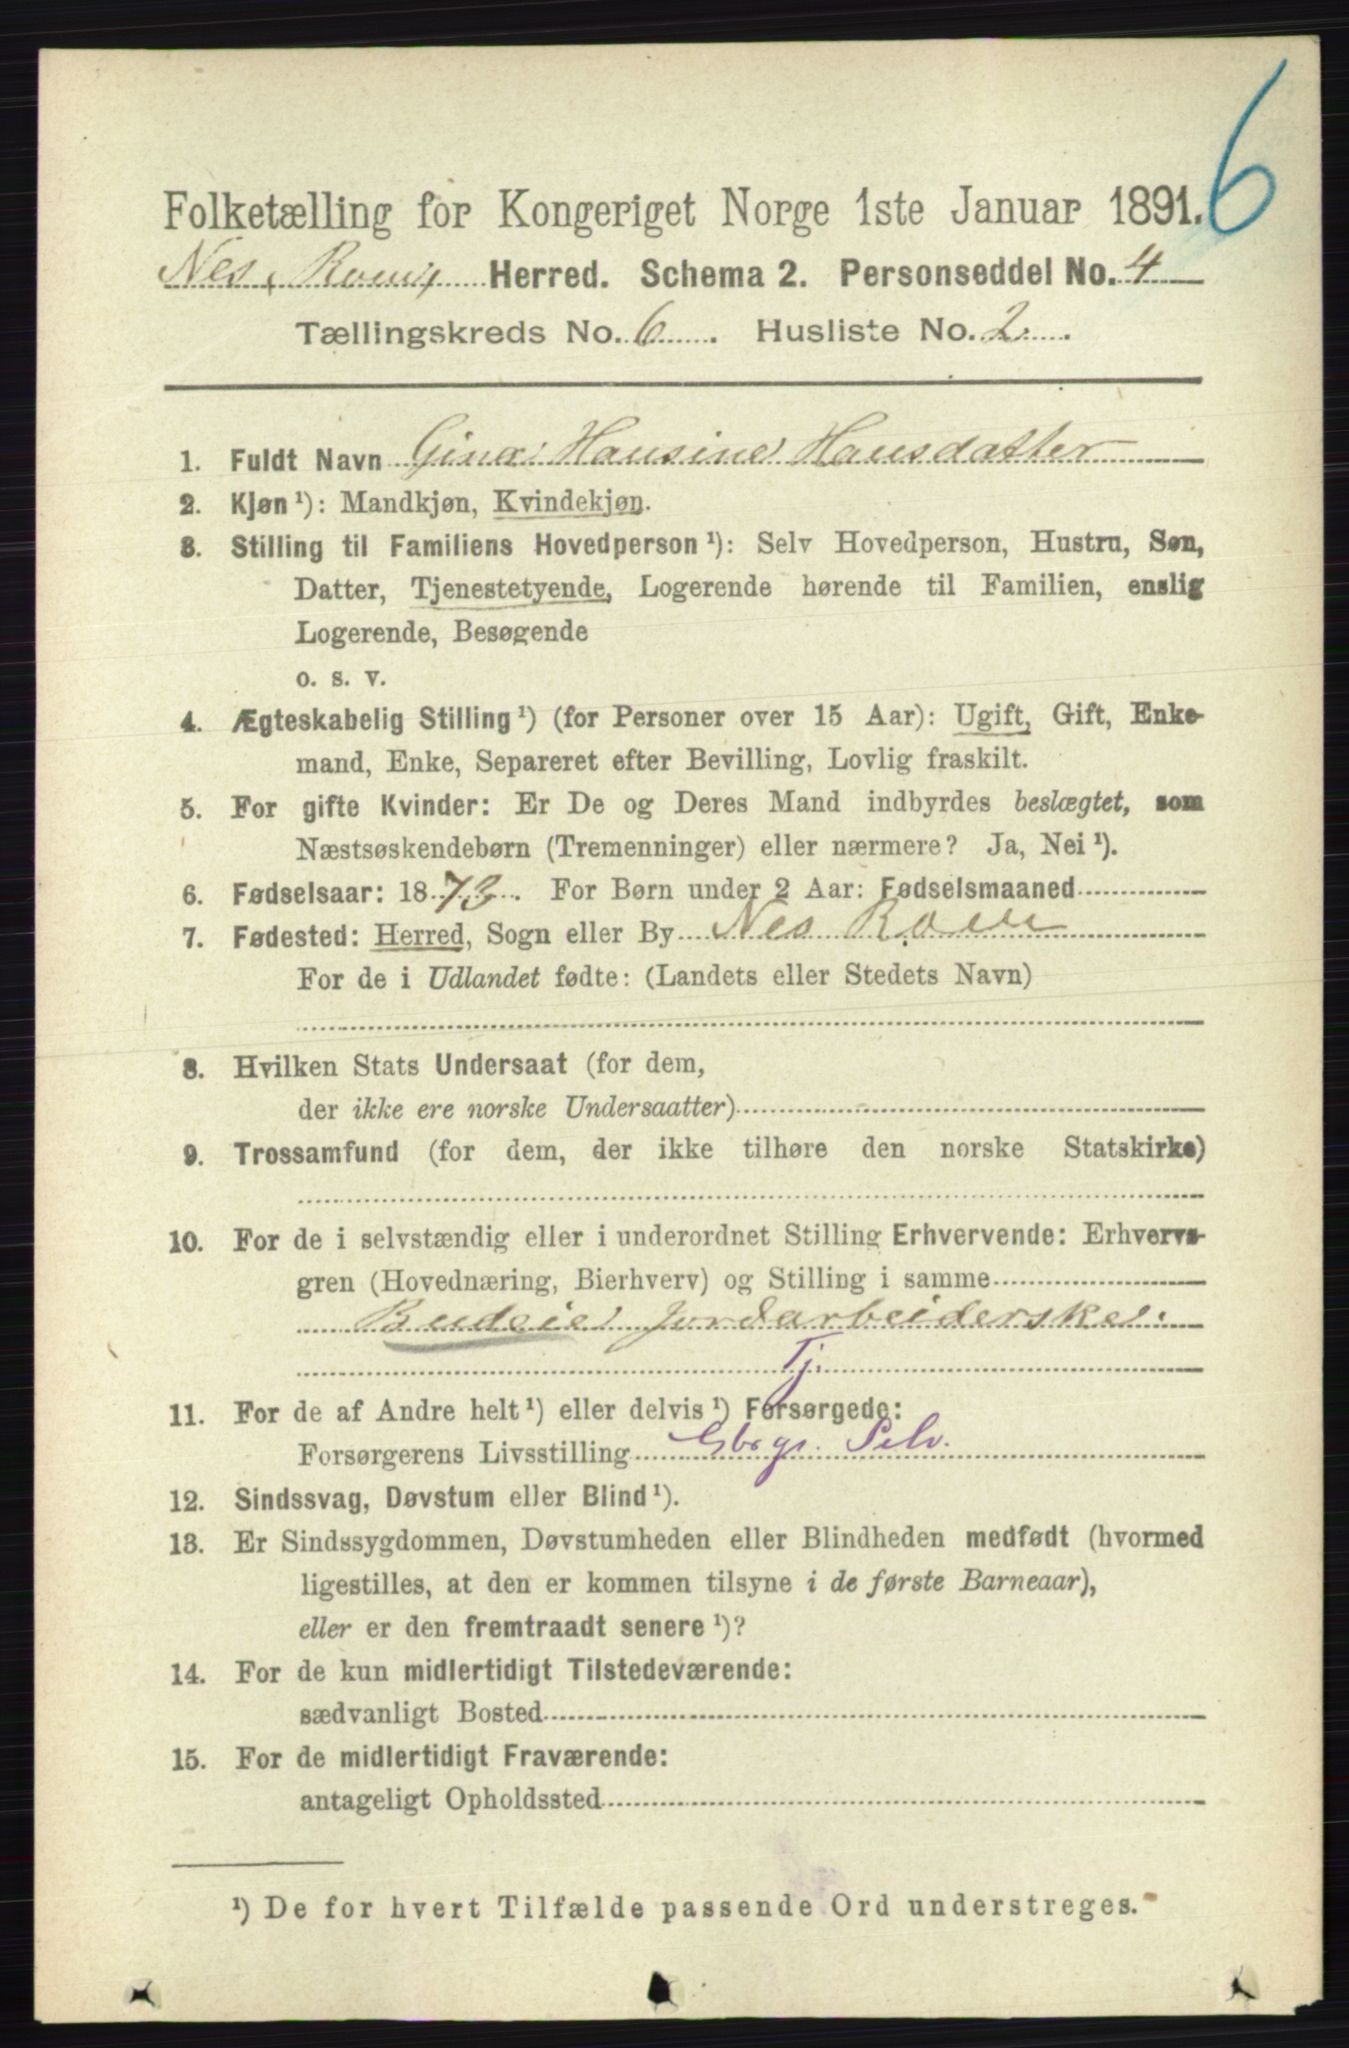 6
Folketælling for Kongeriget Norge 1ste Januar 1891.
Nes, Rom. Herred. Schema 2. Personseddel No. 4
Tællingskreds No. 6. Husliste No. 2.
1. Fuldt Navn Gina Hansine Hansdatter
2. Kjøn ¹): Mandkjøn, Kvindekjøn.
3. Stilling til Familiens Hovedperson ¹): Selv Hovedperson, Hustru, Søn,
Datter, Tjenestetyende, Logerende hørende til Familien, enslig
Logerende, Besøgende
o. s. v.
4. Ægteskabelig Stilling ¹) (for Personer over 15 Aar): Ugift, Gift, Enke-
mand, Enke, Separeret efter Bevilling, Lovlig fraskilt.
5. For gifte Kvinder: Er De og Deres Mand indbyrdes beslægtet, som
Næstsøskendebørn (Tremenninger) eller nærmere? Ja, Nei ¹).
6. Fødselsaar: 1873. For Børn under 2 Aar: Fødselsmaaned
7. Fødested: Herred, Sogn eller By Nes Rom
For de i Udlandet fødte: (Landets eller Stedets Navn)
8. Hvilken Stats Undersaat (for dem,
der ikke ere norske Undersaatter)
9. Trossamfund (for dem, der ikke tilhøre den norske Statskirke)
10. For de i selvstændig eller i underordnet Stilling Erhvervende: Erhvervs-
gren (Hovednæring, Bierhverv) og Stilling i samme
Budeie Jordarbeiderske.
Tj.
11. For de af Andre helt ¹) eller delvis ¹) Forsørgede:
Forsørgerens Livsstilling Gbr. Selv.
12. Sindssvag, Døvstum eller Blind ¹).
13. Er Sindssygdommen, Døvstumheden eller Blindheden medfødt (hvormed
ligestilles, at den er kommen tilsyne i de første Barneaar),
eller er den fremtraadt senere ¹)?
14. For de kun midlertidigt Tilstedeværende:
sædvanligt Bosted
15. For de midlertidigt Fraværende:
antageligt Opholdssted
¹) De for hvert Tilfælde passende Ord understreges.